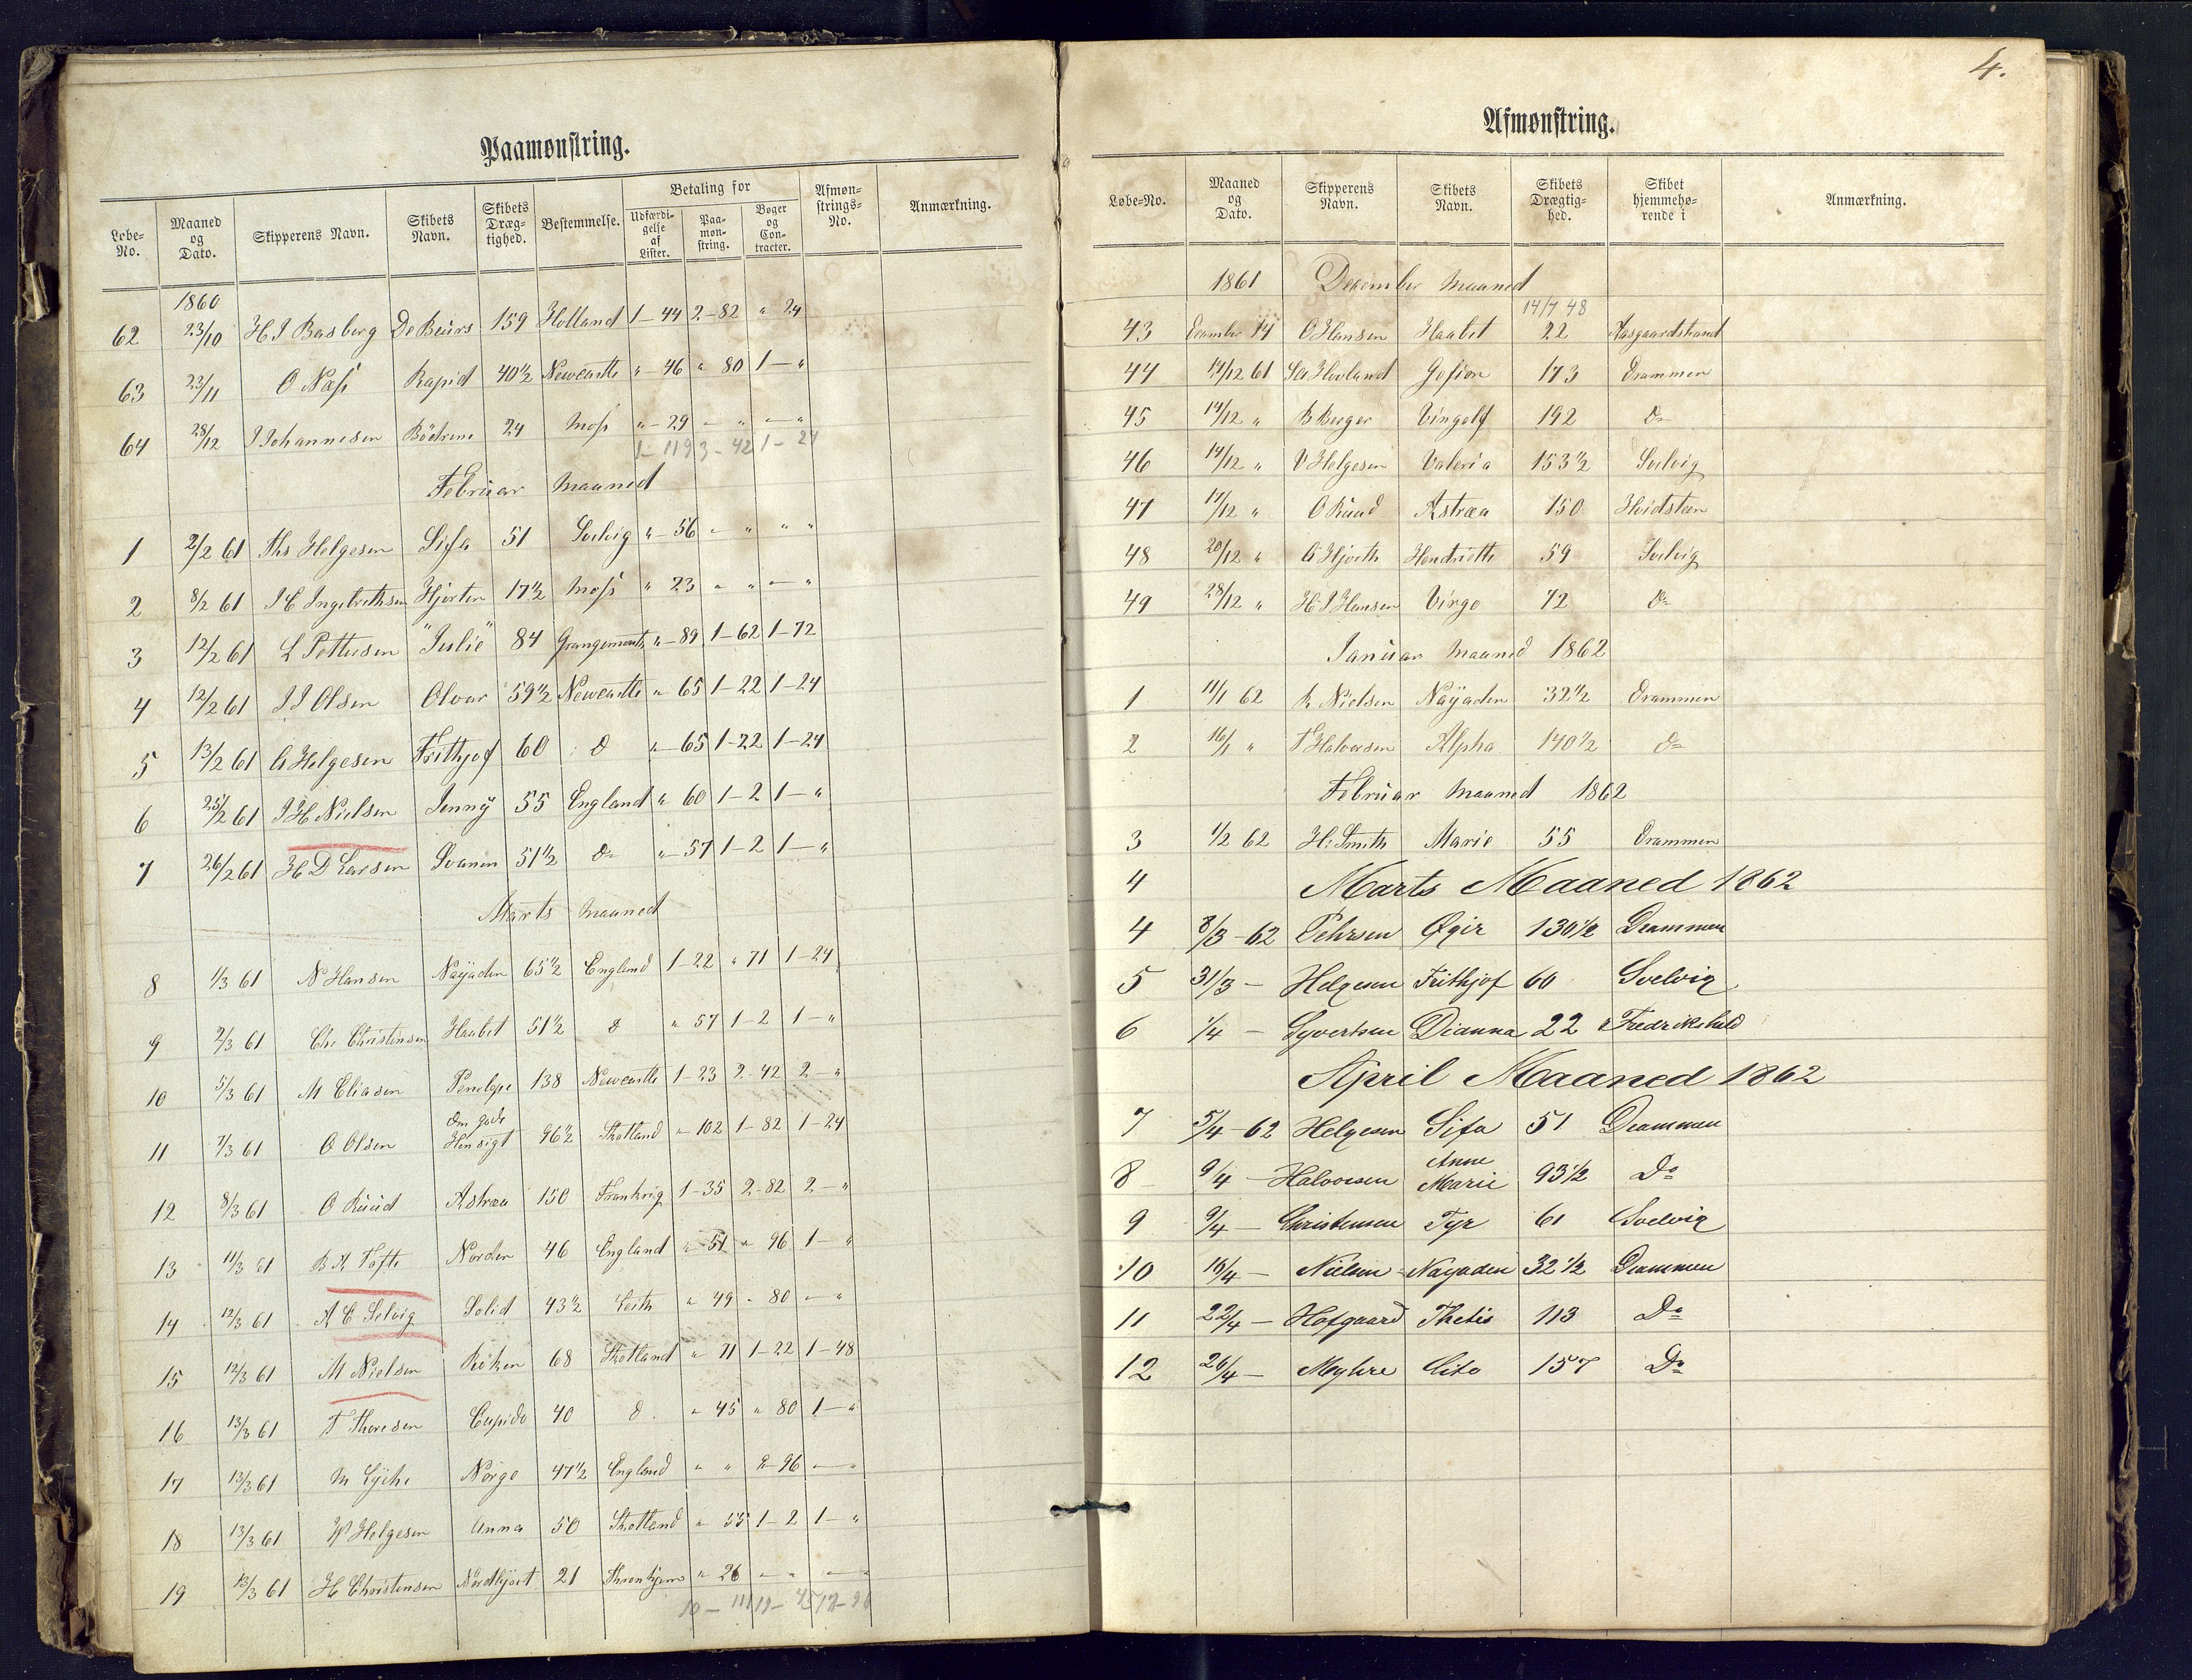 Paamønstring.
Løbe-No. | Maaned og Dato. | Skipperens Navn. | Skibets Navn. | Skibets Dræg-tighed. | Bestemmelse. | Betaling for | Udfærdi-gelse af Lister. | Paa-møn-string. | Bøger og Con-tracter. | Afmøn-strings-No. | Anmærkning.
1860
62 23/10 H I Basberg De Beurs 159 Holland 1-44 2-82 " 24
63 23/11 O Næss Rapid 40 1/2 Newcastle " - 46 " 80 1 - "
64 28/12 I Johannesen 24 Moss " - 29 - " - "
1-119 3-42 1-24
Februar Maaned
1 2/2 61 Ths Helgesen Sifa 51 Svelvig " - 56 - " " "
2 8/2 61 I C Ingebrethsen Hjorten 17 1/2 Moss " 23 - " - "
3 12/2 61 L Pettersen "Julie" 84 Grangemouth " - 89 1-62 1-72
4 12/2 61 I I Olsen Olvar 59 1/2 Newcastle " 65 1-22 1-24
5 13/2 61 C Helgesen Frithjof 60 do " - 65 1-22 1-24
6 25/2 61 I H Nielsen Jenny 55 England " 60 1-2 1 - "
7 26/2 61 H D Larsen Svanen 51 1/2 do " - 57 1-2 1 - "
Marts Maaned
8 1/3 61 N Hansen Nayaden 65 1/2 England 1-22 " 71 1-24
9 2/3 61 Chr Christensen Haabet 51 1/2 do " 57 1-2 1 - "
10 5/3 61 M Eliasen Penelope 138 Newcastle 1-23 2-42 2 - "
11 7/3 61 O Olsen Den gode Hensigt 96 1/2 Skotland " 102 1-82 1-24
12 8/3 61 O Ruud Astræa 150 Frankrig 1-35 2-82 2 - "
13 11/3 61 B A Tofte Norden 46 England " - 51 " 96 1 - "
14 12/3 61 A C Selvig Solid 43 1/2 Leith " 49 - 80 - "
15 12/3 61 M Nielsen Röken 68 Skotland " 71 1-22 1-48
16 13/3 61 T Thoresen Cupido 40 do " 45 " 80 1 - "
17 13/3 61 M Lyche Norge 47 1/2 England " " 2-96 - "
18 13/3 61 W Helgesen Anna 50 Skotland " 55 1-2 1 - "
19 13/3 61 H Christensen 21 Thronhjem " 26 - " -
4.
Afmønstring.
Løbe-No. | Maaned og Dato. | Skipperens Navn. | Skibets Navn. | Skibets Drægtig-hed. | Skibet hjemmehø-rende i | Anmærkning.
1861 December Maaned
14/7 48
43 December 14 O Hansen Haabet 22 Aasgaardstrand
44 14/12 61 Hovland Gefion 173 Drammen
45 14/12 " B Berger Vingolf 192 do
46 14/12 " V Helgesen Valeria 153 1/2 Svelvig
47 17/12 " O Ruud Astræa 150 Hvidsteen
48 20/12 " C Hjorth Hendriette 59 Svelvig
49 28/12 " H I Hansen Virgo 72 do
Januar Maaned 1862
1 11/1 62 R Nielsen Nayaden 32 1/2 Drammen
2 16/1 " T Halvorsen Alpha 140 1/2 do
Februar Maaned 1862
3 1/2 62 H. Smith Marie 55 Drammen
4 Marts Maaned 1862
4 8/3 - 62 Pehrsen Øgir 130 1/2 Drammen
5 31/3 - Helgesen Frithjof 60 Svelvig
6 1/4 - Syvertsen Dianna 22 Fredrikshald
April Maaned 1862
7 5/4 - 62 Helgesen Sifa 51 Drammen
8 9/4 - Halvorsen Anne Marie 93 1/2 Do
9 9/4 - Christensen Tyr 61 Svelvig
10 16/4 - Nielsen Nayaden 32 1/2 Drammen
11 22/4 - Hofgaard Thetis 113 Do
12 26/4 - Myhre Cito 157 Do